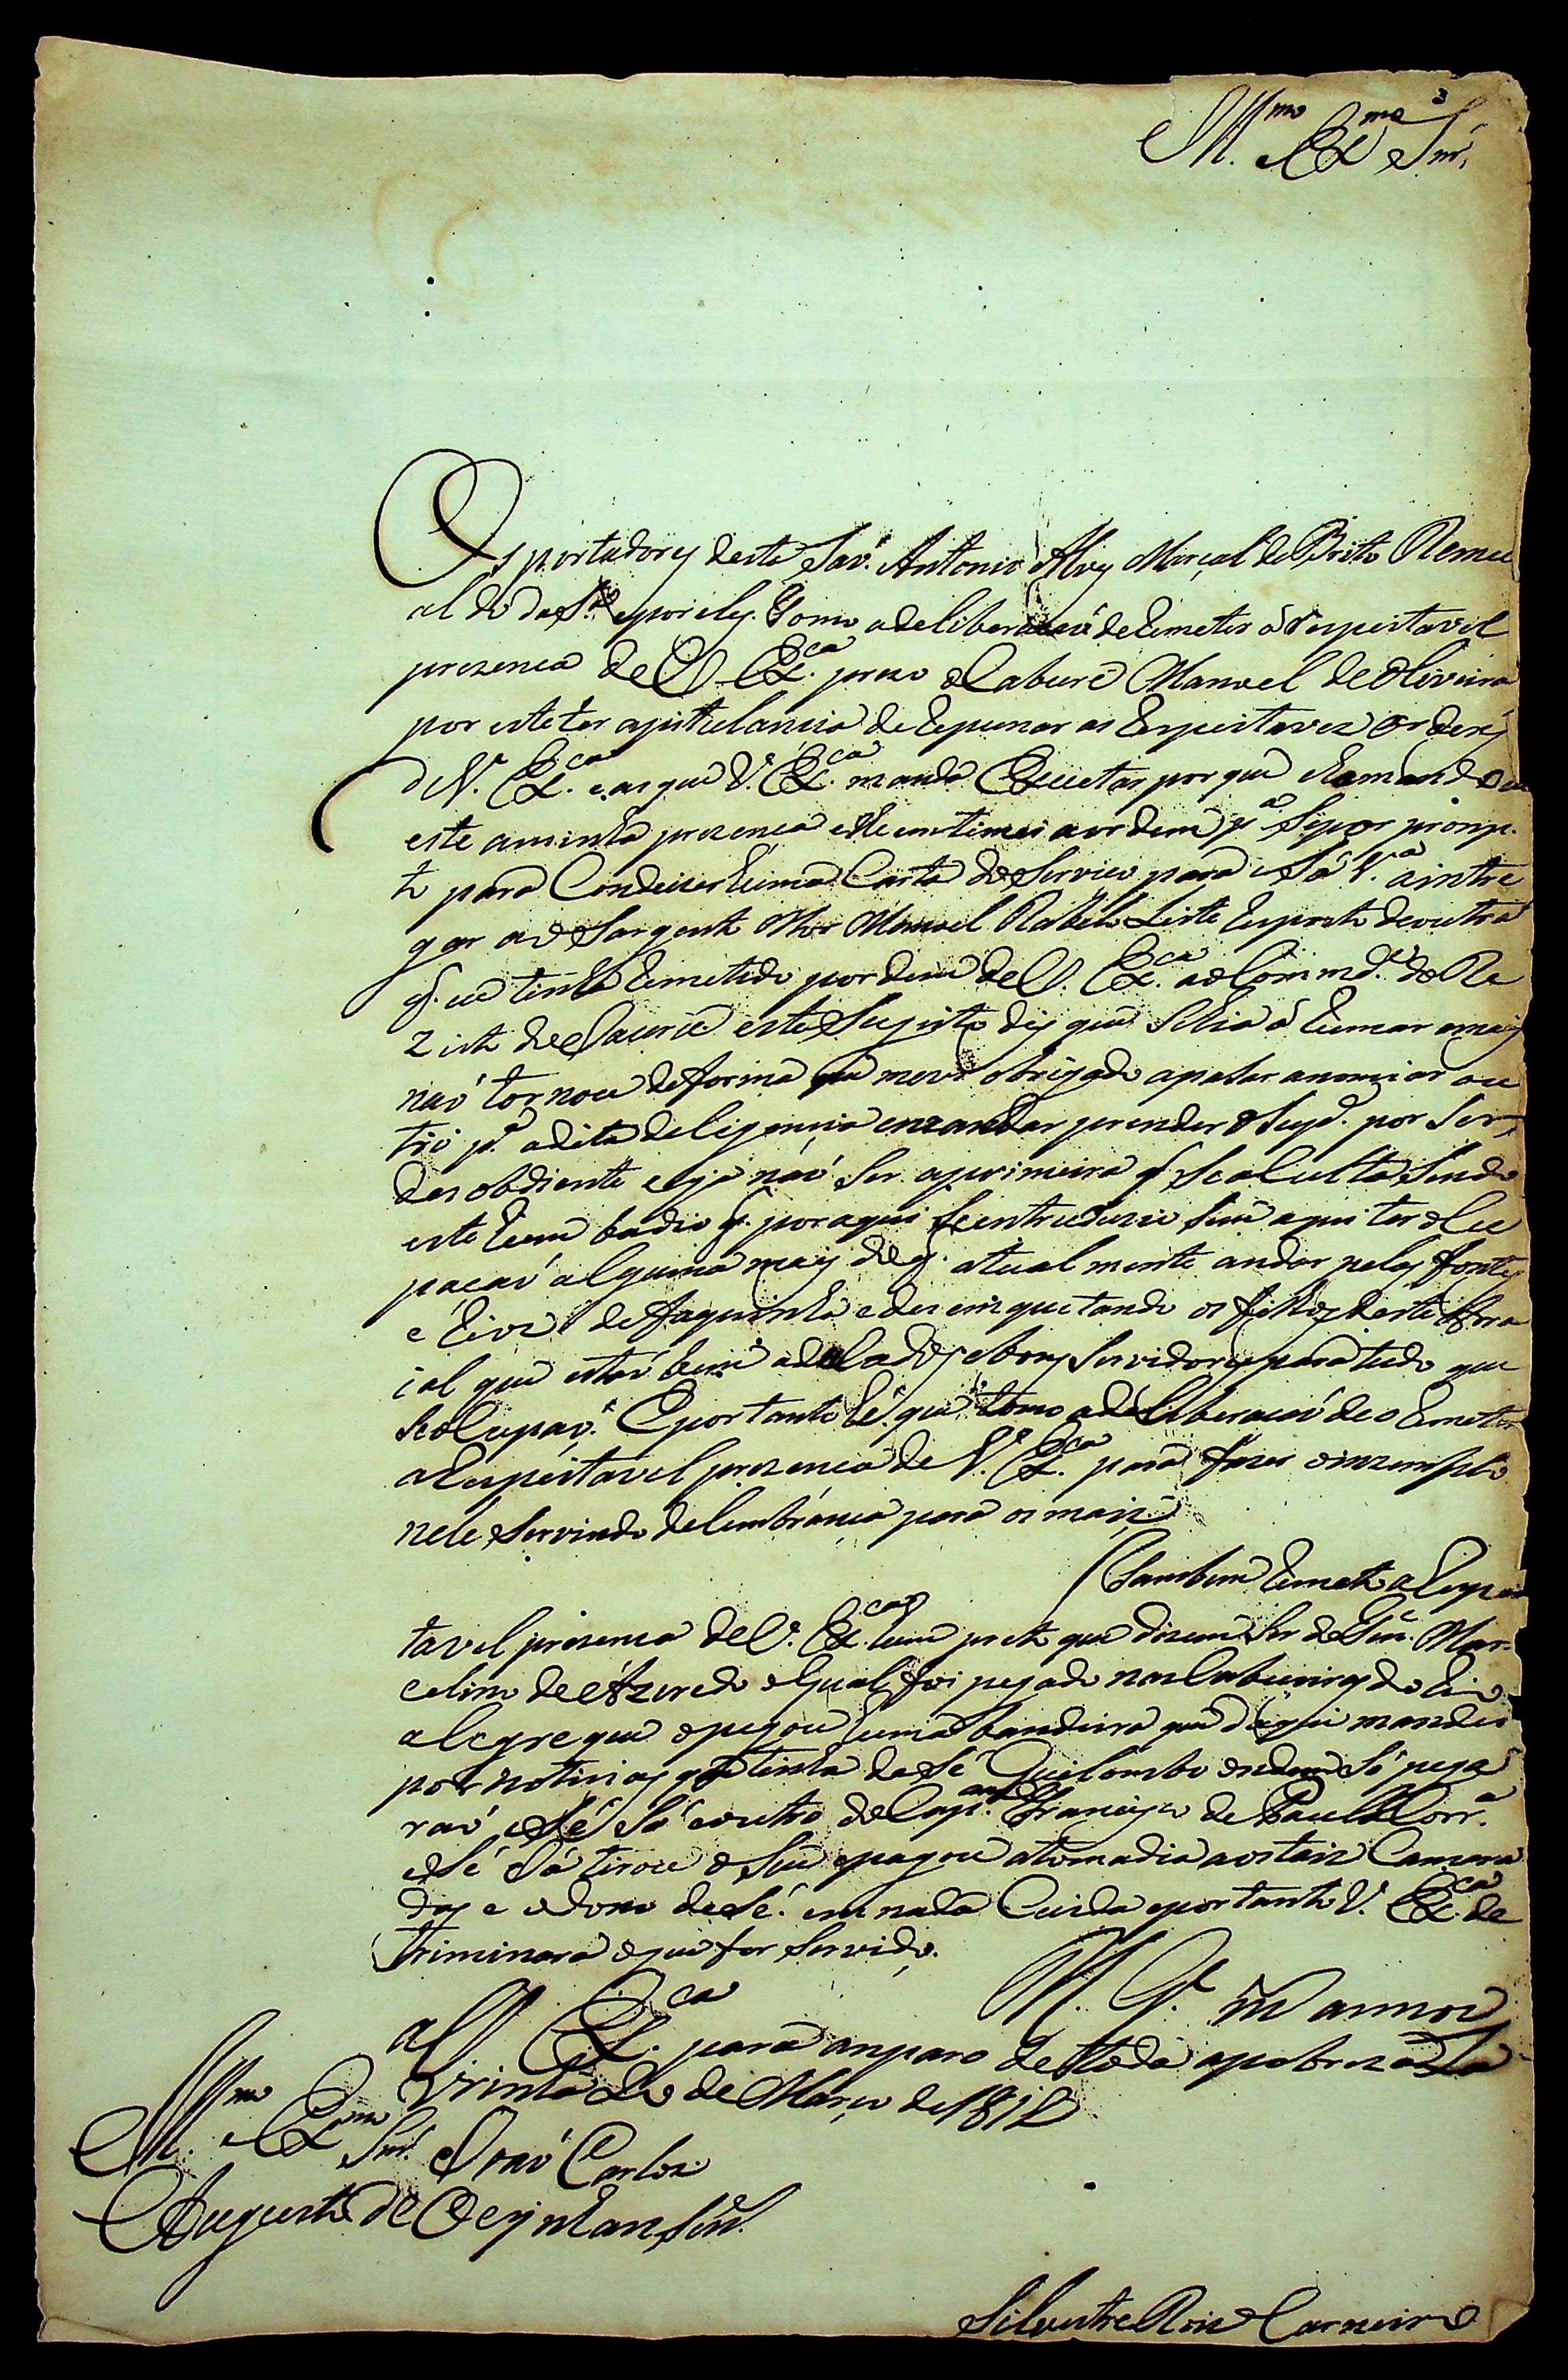 Ill.mo Ex.mo Snr.
Os portadores deste Saõ Antonio Alvs Marçal de Brito Remu
al do da S.ª e por eles tomo a deliberacaõ de Remeter á respeitavel
prezenca de V. Ex.ca prezo Manoel de Oliveira
por este ter a de Repunar as Respeitaveis Ordens
de V. Ex.ca e as que V. Ex.ca manda Executar por que
este a minha prezenca e lhe intimei a ordem p.ª Se por promp
to para Conduzer huma Carta do Servico para a S.ª a intre
gar ao Sargento Mor Manoel Rabelo Leite Resposta de outra
q. eu tinha Remetido por dem de V. Ex.ca ao Comm.de do Re
zisto de este Sugeito dis que Seria a Rumar e mais
naõ tornou de forma que me vi obrigado a pasar a nomiar ou
tro p.ª a dita deligencia e mandar prender o Sugº. por Ser
desobdiente e ja naõ Ser a primeira q. Se aculta Sendo
este hum badio q. por aqui Se entreduzio Sem aqui ter ocu
pacaõ alguma mais do q. atual mente andar pelas fontes
e Rios de e desinquetando os filhos deste Arra
ial que estaõ bem adelados e bons Servidores para tudo que
Se ocupaõ. E portanto hé que tomo a deliberacaõ de o Remeter
a Respeitavel prezenca de V. Ex.ca para fazer o inzemplo
nele Servindo de lembranca para os mais
Tambem Remeto a Respei
tavel prezenca de V. Ex.ca hum preto que dizem Ser de Mar
celino de Azeredo o qual foi pegado nas Cabeseiras do Rio
alegre que o pegou huma bandeira que daqui mandei
por noticias que tinha de Sé Quilombo onde Só pega
raõ e Sé Só e outro do Cap.am Francisco de Paula Corr.ª
e Sé Ja tirou o Seu e pagou a tomadia aos tais Camara
das e o dono de Sé em nada Cuida e portanto V. Ex.ca de
triminara o que for Servido.
D. G.e m annos
a V. Ex.ca para anparo de toda a pobreza La
trinta de Março de 1812
Ill.mo Ex.mo Snr. Joaõ Carlos
Augusto de Oeynhansen.
Silvestre Roiz Carneiro